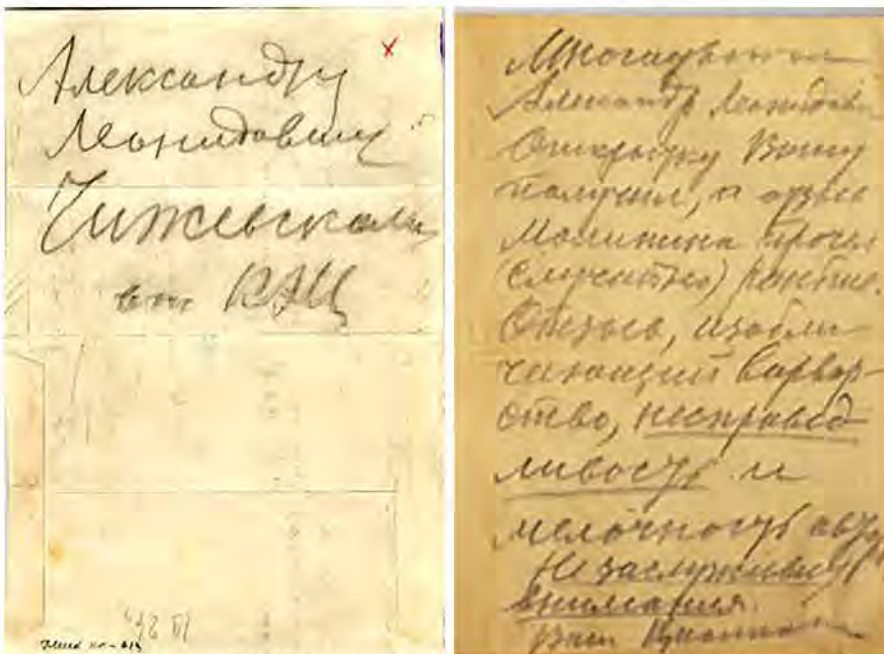 Александру
Леонидовичу
Чижевскому
от КЭЦ
Многоуважаем
Александр Леонидови
Открытку Вашу
получил, а отзыв
Малинина прочел
раньше.
Отзыв, изобли-
чающий варвар-
ство, несправед
ливость и
мелочность авто
Не заслуживает
внимания.
Ваш